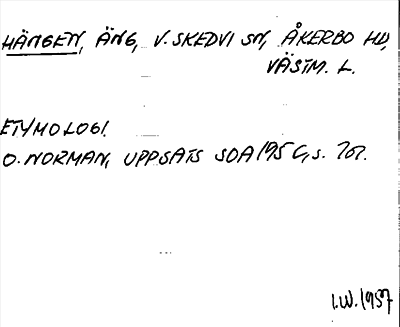 HÄNGEN, ÄNG, V. SKEDVI SN, ÅKERBO HD,
VÄSTM. L.
ETYMOLOGI.
O. NORMAN, UPPSATS SOA 195 C, s.
I.W. 1957